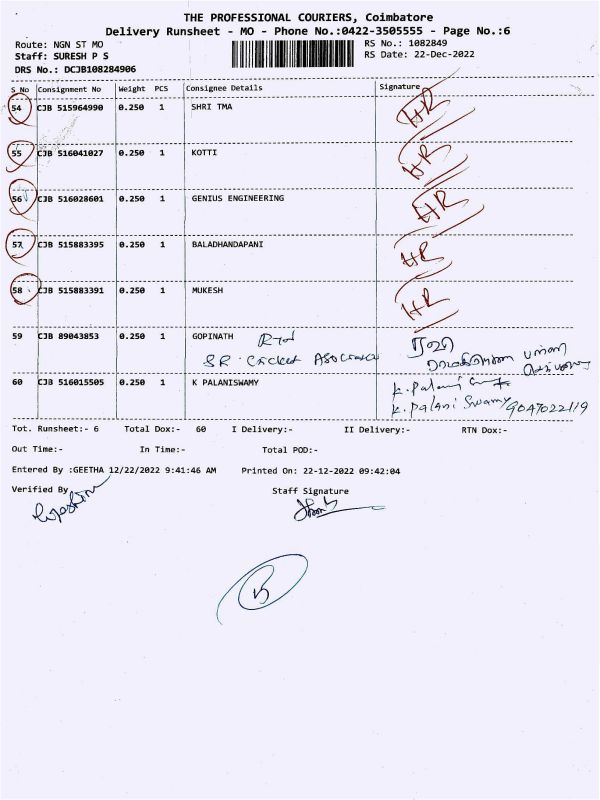 THE PROFESSIONAL COURIERS, Coimbatore
Delivery Runsheet - MO - Phone No.:0422-3505555 - Page No.:6
Route: NGN ST MO RS No.: 1082849
Staff: SURESH P S RS Date: 22-Dec-2022
DRS No.: DCJB108284906
S No Consignment No Weight PCS Consignee Details Signature
54 CJB 515964990 0.250 1 SHRI TMA HR
55 CJB 516041027 0.250 1 KOTTI HR
56 CJB 516028601 0.250 1 GENIUS ENGINEERING HR
57 CJB 515883395 0.250 1 BALADHANDAPANI HR
58 CJB 515883391 0.250 1 MUKESH HR
59 CJB 89043853 0.250 1 GOPINATH
SR Cricket
60 CJB 516015505 0.250 1 K PALANISWAMY K. Palani
K. Palani Swamy 9047022119
Tot. Runsheet:- 6 Total Dox:- 60 I Delivery:- II Delivery:- RTN Dox:-
Out Time:- In Time:- Total POD:-
Entered By :GEETHA 12/22/2022 9:41:46 AM Printed On: 22-12-2022 09:42:04
Verified By Staff Signature